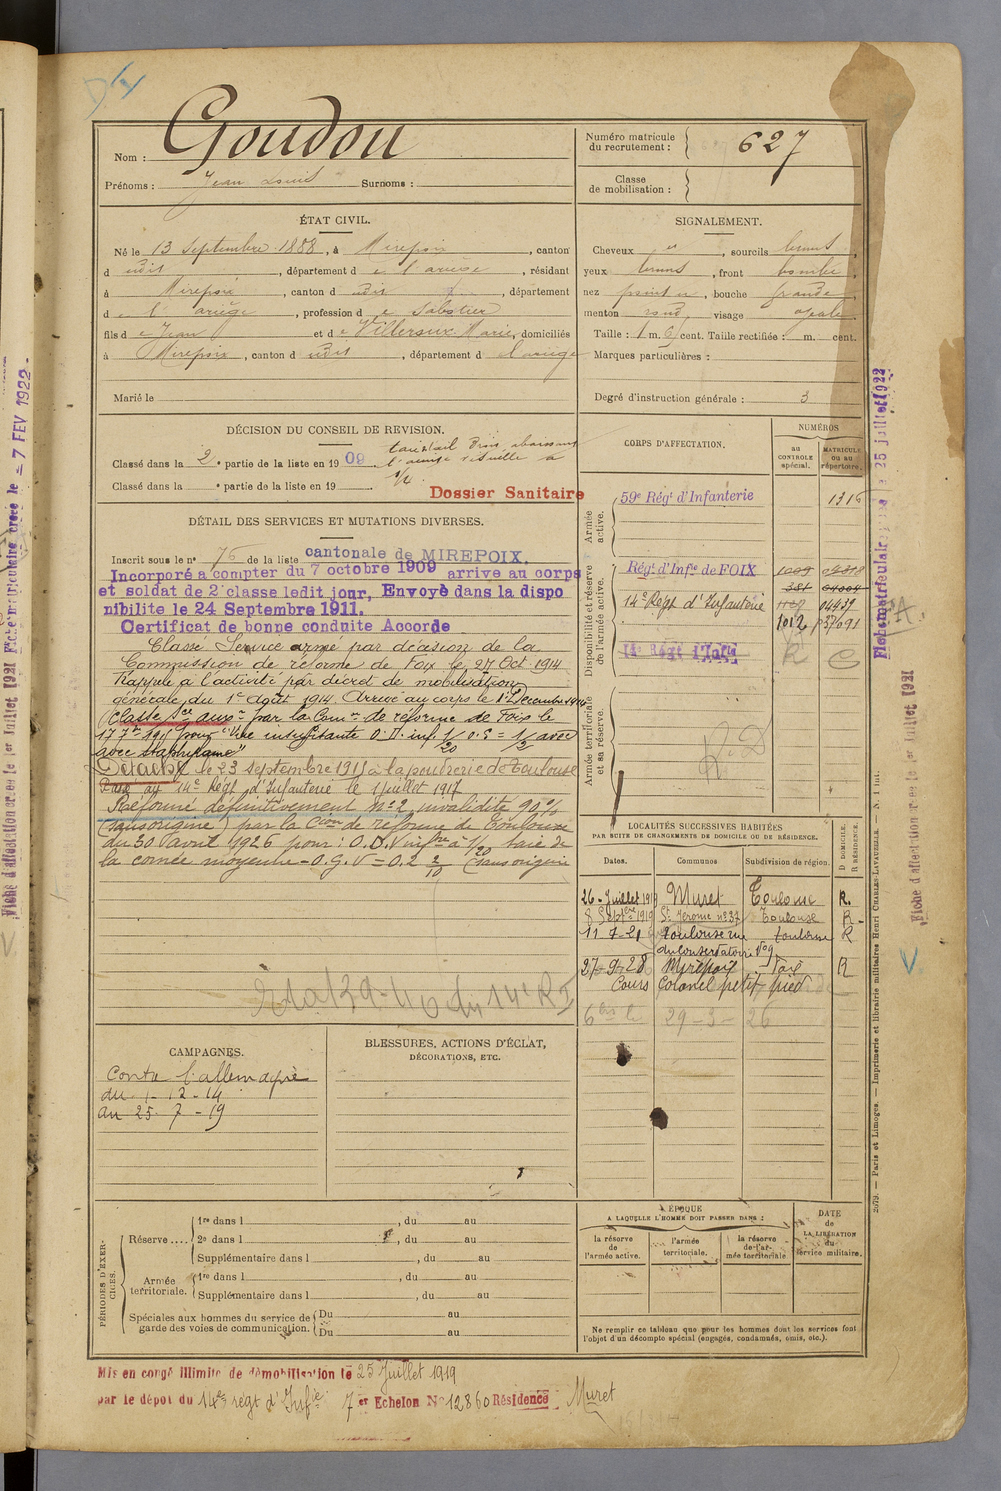 Goudou
Nom :
Prénoms : Jean Louis Surnoms :
Numéro matricule du recrutement : 627
Classe de mobilisation :
ÉTAT CIVIL.
Né le 13 Septembre 1888, à Mirepoix, canton
d udit, département de l'ariège, résidant
à Mirepoix, canton d udit, département
de l'ariège, profession de Sabotier
fils de Jean et de Marie, domiciliés
à Mirepoix, canton d udit, département d l'ariège
Marié le
SIGNALEMENT.
Cheveux, sourcils bruns
yeux bruns, front bombé,
nez pointu, bouche grande,
menton rond, visage ovale
Taille : 1 m. 6 cent. Taille rectifiée : m. cent.
Marques particulières :
Degré d'instruction générale : 3
DÉCISION DU CONSEIL DE REVISION.
Classé dans la 2e partie de la liste en 1909
Classé dans la e partie de la liste en 19
Dossier Sanitaire
DÉTAIL DES SERVICES ET MUTATIONS DIVERSES.
Inscrit sous le n° 76 de la liste cantonale de MIREPOIX.
Incorporé a compter du 7 octobre 1909 arrive au corps
et soldat de 2e classe ledit jour, Envoyé dans la dispo
nibilite le 24 Septembre 1911.
Certificat de bonne conduite Accorde
Classé Service armé par décision de la
Commission de réforme de Foix le 27 Oct 1914
Rappelé à l'activité par décret de mobilisation
générale du 1er août 1914. Arrivé au corps le 1er Décembre 1914
Classé Sce aux. par la Comon de réforme de Foix le
17 7bre 1915 pour "Vue insuffisante O.D. inf. 1/20 O.G = 1/2 avec
avec staphylome"
Détaché le 23 septembre 1915 à la poudrerie de Toulouse
Passé au 14e Régt d'Infanterie le 1 juillet 1917
Réformé définitivement n°2, invalidité 90%
(sans origine) par la Cion de réforme de Toulouse
du 30 avril 1926 pour : O.D. V infre à 1/20 taie de
la cornée moyenne - O.G. V = 0,2 2/10 (sans origine
CORPS D'AFFECTATION.
NUMÉROS
au CONTROLE spécial.
MATRICULE ou au répertoire.
Armée active.
59e Régt d'Infanterie 1316
Disponibilité et réserve de l'armée active.
Régt d'Infie de FOIX
14e Régt d'Infanterie 04439
1012
14e Régt d'Infie
Armée territoriale et sa réserve.
R.D
LOCALITÉS SUCCESSIVES HABITÉES
PAR SUITE DE CHANGEMENTS DE DOMICILE OU DE RÉSIDENCE.
Dates. Communes Subdivision de région. D DOMICILE. R RÉSIDENCE.
26 - Juillet 1919 Muret Toulouse R.
8 Septbre 1919 St Jerome n° 37 Toulouse R
11 7-21 Toulouse rue Toulouse R
du Conservatoire N° 9
27-9-28 Mirepoix Foix R
Cours Colonel petit pied
29-3-26
CAMPAGNES.
Contre l'allemagne
du 1 - 12 - 14
au 25 7 - 19
BLESSURES, ACTIONS D'ÉCLAT,
DÉCORATIONS, ETC.
PÉRIODES D'EXERCICES.
Réserve
1re dans l , du au
2e dans l , du au
Supplémentaire dans l , du au
Armée territoriale.
1re dans l , du au
Supplémentaire dans l , du au
Spéciales aux hommes du service de garde des voies de communication.
Du au
Du au
ÉPOQUE
A LAQUELLE L'HOMME DOIT PASSER DANS :
la réserve de l'armée active.
l'armée territoriale.
la réserve de l'armée territoriale
DATE de LA LIBÉRATION du service militaire.
Ne remplir ce tableau que pour les hommes dont les services font
l'objet d'un décompte spécial (engagés, condamnés, omis, etc.).
Mis en congé illimité de démobilisation le 25 Juillet 1919
par le dépôt du 14e régt d'Infie 7er Echelon No 12860 Résidence Muret
2679. — Paris et Limoges. — Imprimerie et librairie militaires Henri CHARLES-LAVAUZELLE.
Fiche matriculaire créée le 25 juillet 1922
Fiche d'affectation créée le 1er Juillet 1921
Fiche matriculaire créée le 7 FEV 1922
Fiche d'affectation créée le 1er Juillet 1921